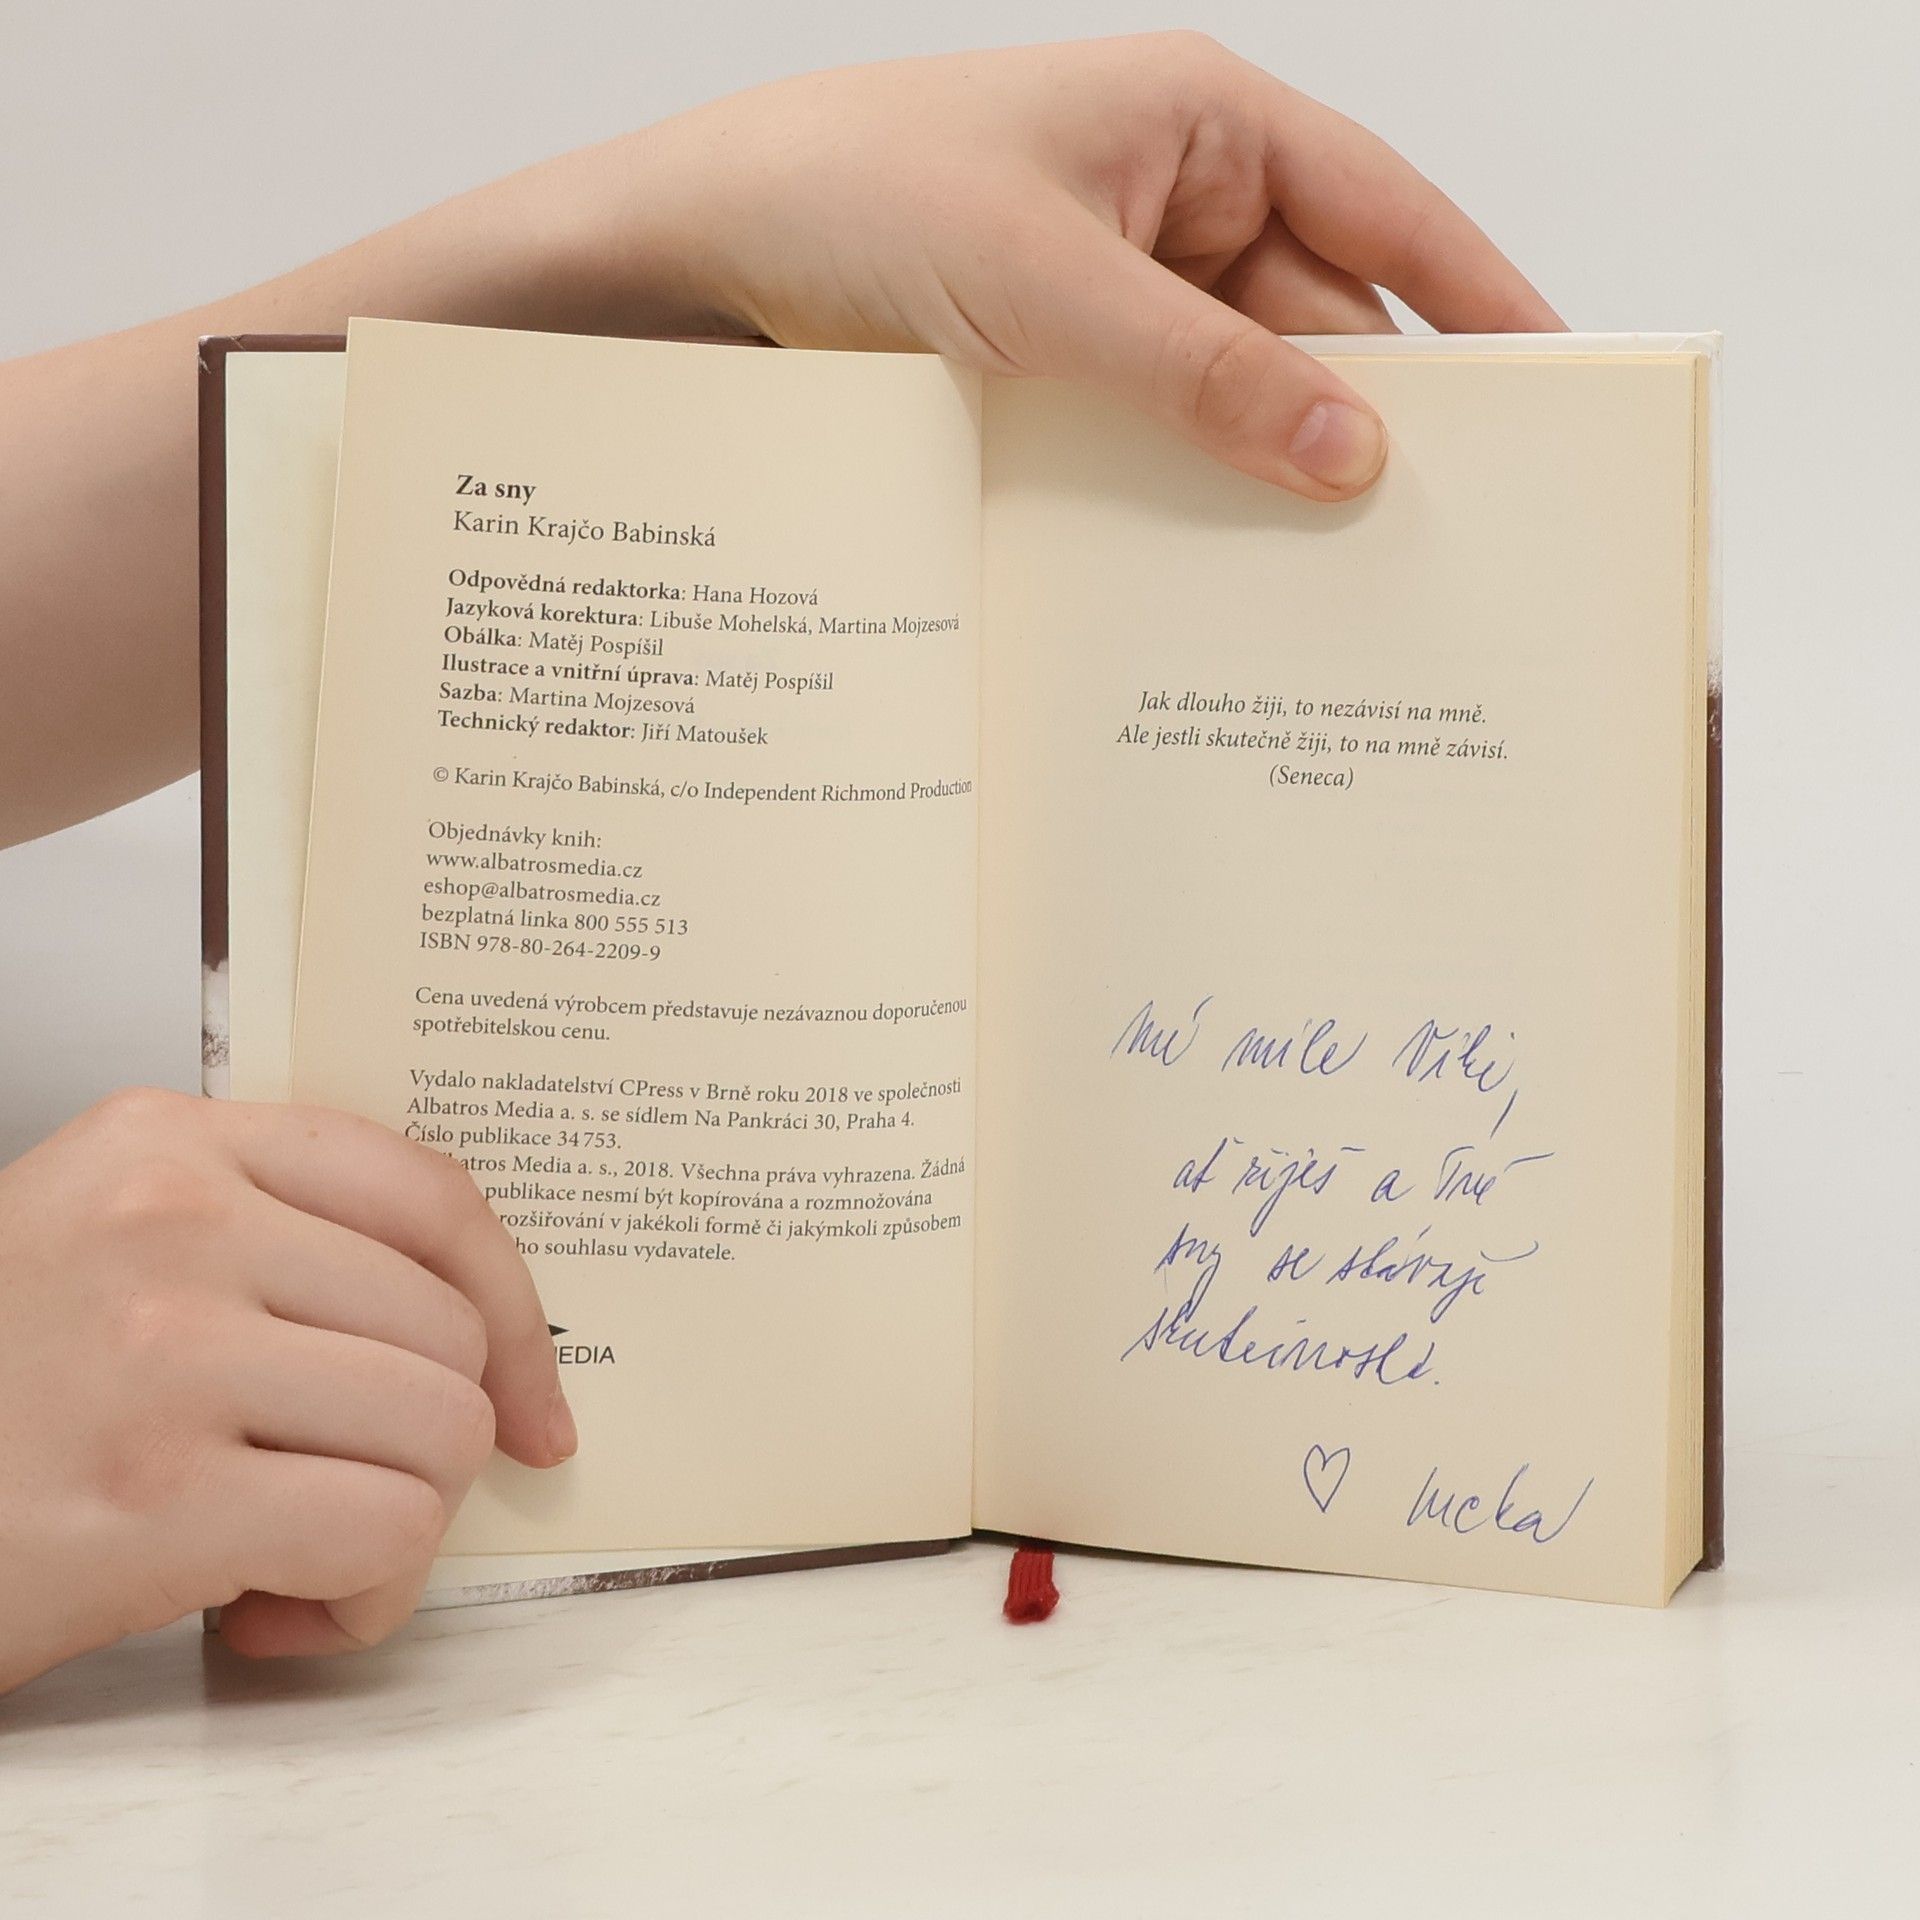 Za sny
Karin Krajčo Babinská
Odpovědná redaktorka: Hana Hozová
Jazyková korektura: Libuše Mohelská, Martina Mojzesová
Obálka: Matěj Pospíšil
Ilustrace a vnitřní úprava: Matěj Pospíšil
Sazba: Martina Mojzesová
Technický redaktor: Jiří Matoušek
© Karin Krajčo Babinská, c/o Independent Richmond Production
Objednávky knih:
www.albatrosmedia.cz
eshop@albatrosmedia.cz
bezplatná linka 800 555 513
ISBN 978-80-264-2209-9
Cena uvedená výrobcem představuje nezávaznou doporučenou
spotřebitelskou cenu.
Vydalo nakladatelství CPress v Brně roku 2018 ve společnosti
Albatros Media a. s. se sídlem Na Pankráci 30, Praha 4.
Číslo publikace 34 753.
atros Media a. s., 2018. Všechna práva vyhrazena. Žádná
publikace nesmí být kopírována a rozmnožována
rozšiřování v jakékoli formě či jakýmkoli způsobem
ho souhlasu vydavatele.
EDIA
Jak dlouho žiji, to nezávisí na mně.
Ale jestli skutečně žiji, to na mně závisí.
(Seneca)
Mé milé Viki,
ať žiješ a Tvé
sny se stávají
skutečností.
♡ Lucka